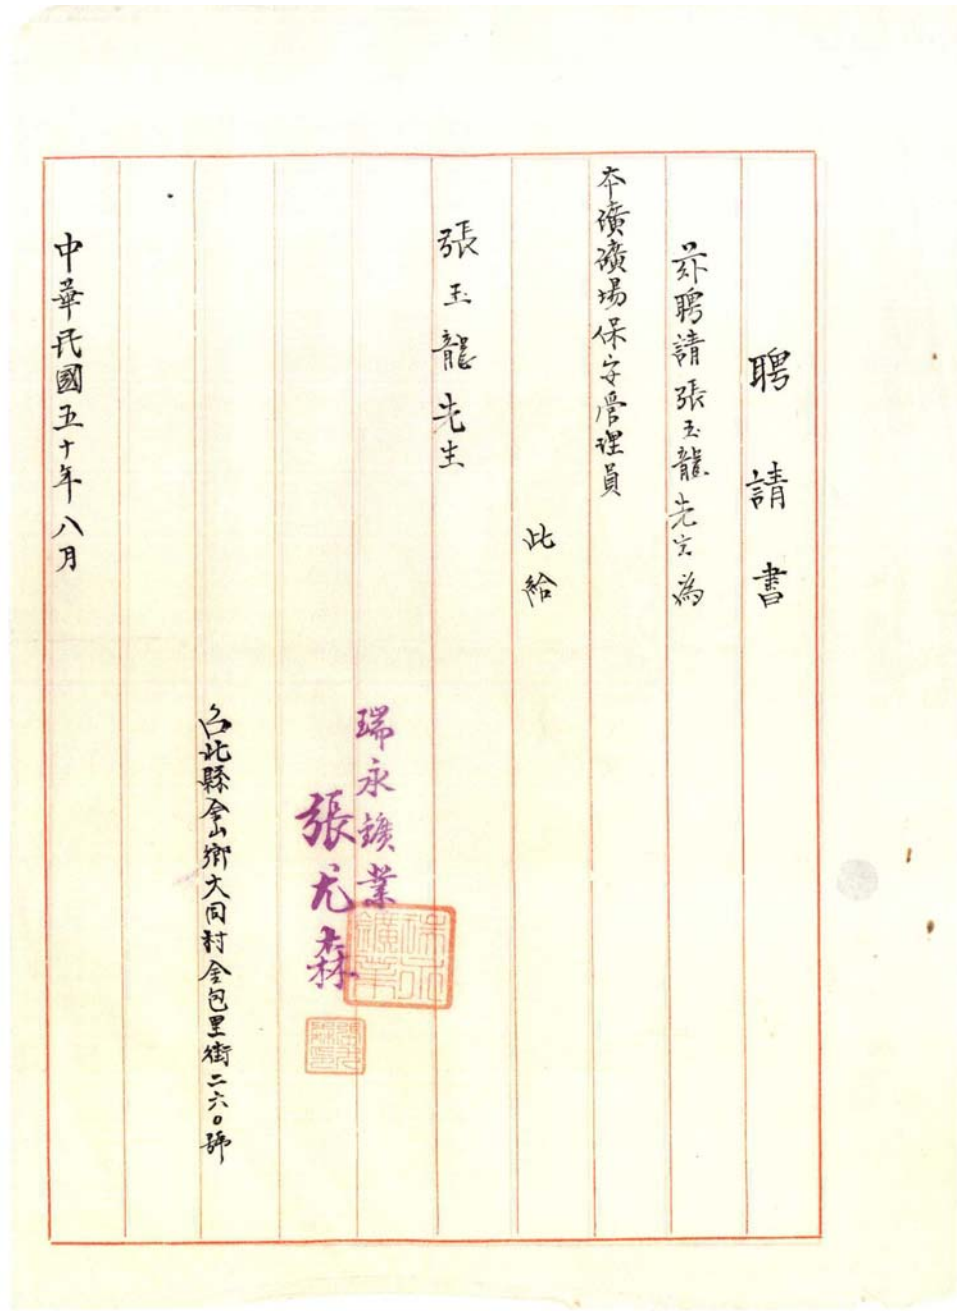 聘請書
茲聘請張玉龍先生為
本礦礦場保安管理員
此給
張玉龍先生
瑞永鑛業
張尤森
台北縣金山鄉大同村金包里街二六0號
中華民國五十年八月